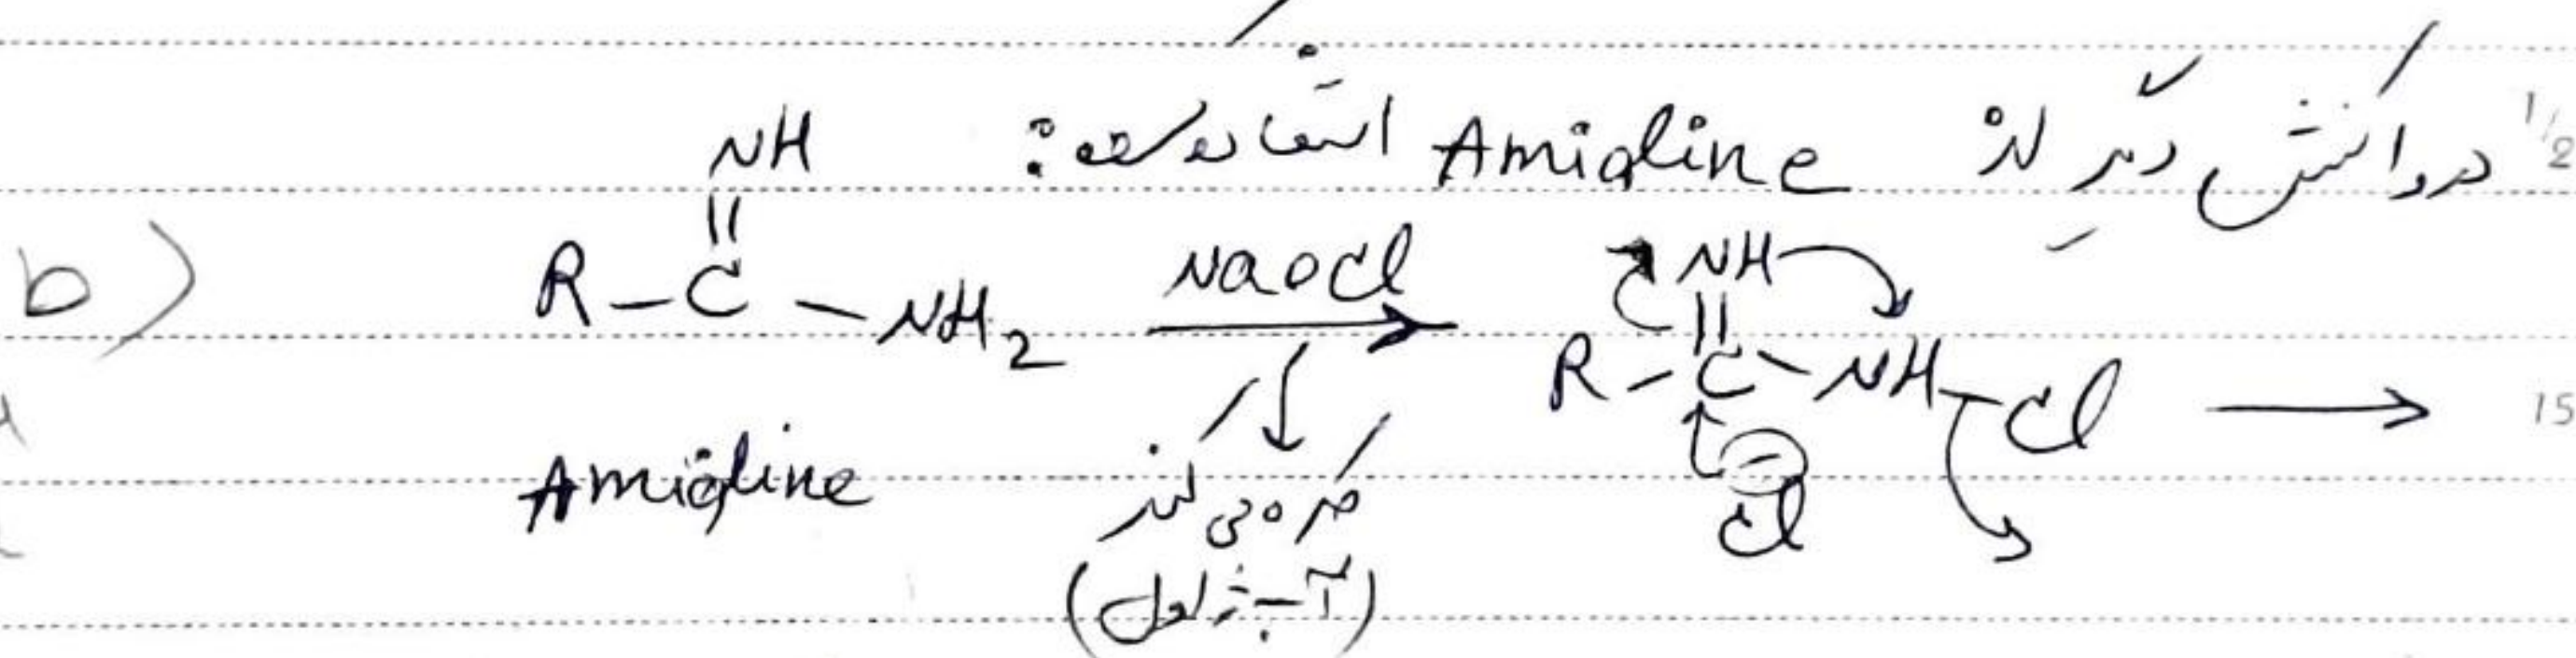 در واکنش دیگر از Amidine استفاده شده:
b) R–C(=NH)–NH2 NaOCl → R–C(=NH)–NH–Cl →
Cl⊖
Amidine
کلره می کند
(آب ژاول)
1/2
15